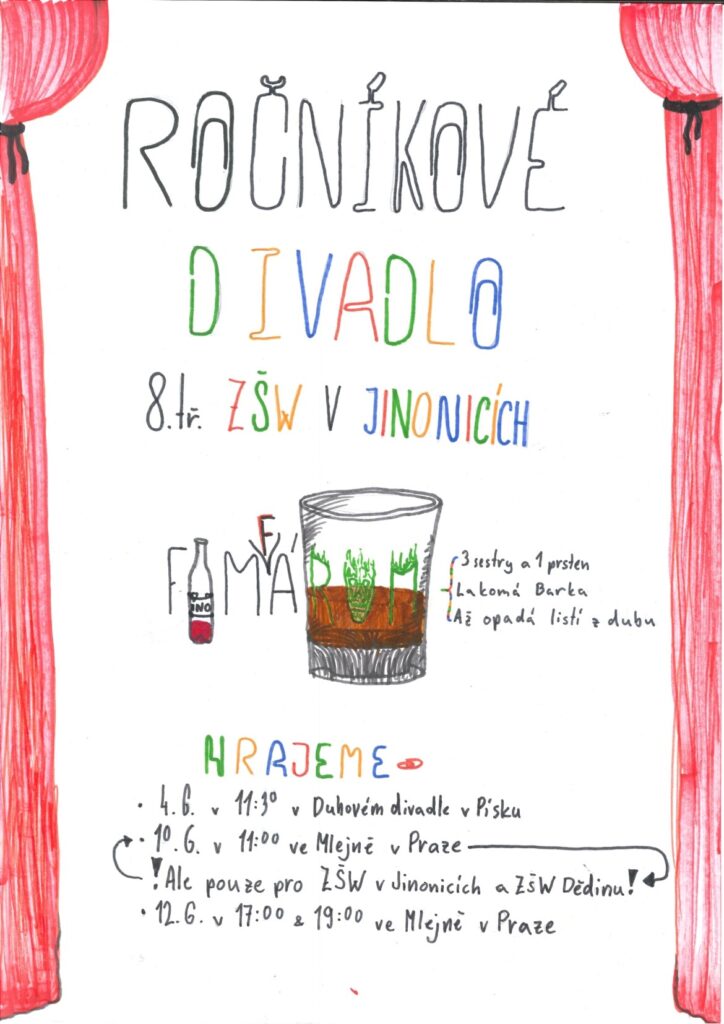 ROČNÍKOVÉ
DIVADLO
8.tř. ZŠW V JINONICÍCH
FIMFÁRUM
3 sestry a 1 prsten
Lakomá Barka
Až opadá listí z dubu
HRAJEME
• 4.6. v 11:30 v Duhovém divadle v Písku
• 10.6. v 11:00 ve Mlejně v Praze
!Ale pouze pro ZŠW v Jinonicích a ZŠW Dědinu!
• 12.6. v 17:00 & 19:00 ve Mlejně v Praze